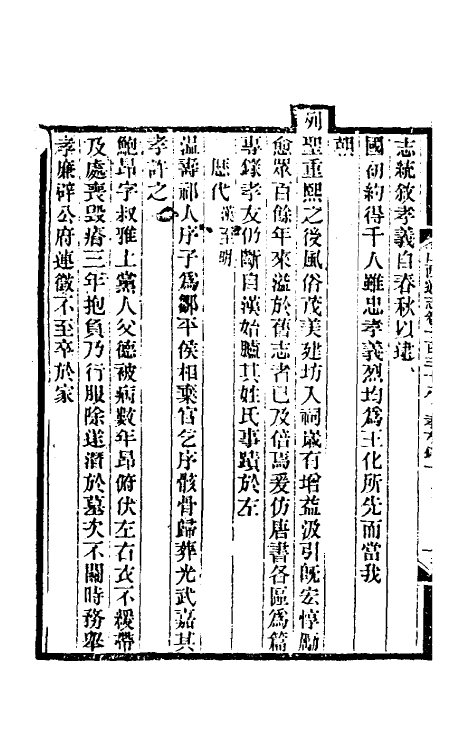 志統敘孝義自春秋以逮
國朝約得千人雖忠孝義烈均爲王化所先而當我
朝
列聖重熙之後風俗茂美建坊入祠歲有增益汲引旣宏惇勵
愈眾百餘年來溢於舊志者已及倍焉爰仿唐書各區爲篇
專錄孝友仍斷自漢始臚其姓氏事蹟於左
歷代漢至明
溫壽祁人序子爲鄒平侯相棄官乞序骸骨歸葬光武嘉其
孝許之
鮑昂字叔雅上黨人父德被病數年昂俯伏左右衣不緩帶
及處喪毀瘠三年抱負乃行服除遂潛於墓次不關時務舉
孝廉辟公府連徵不至卒於家